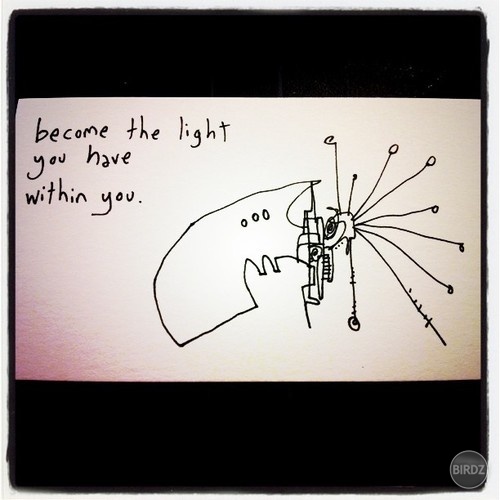 become the light
you have
within you.
BIRDZ